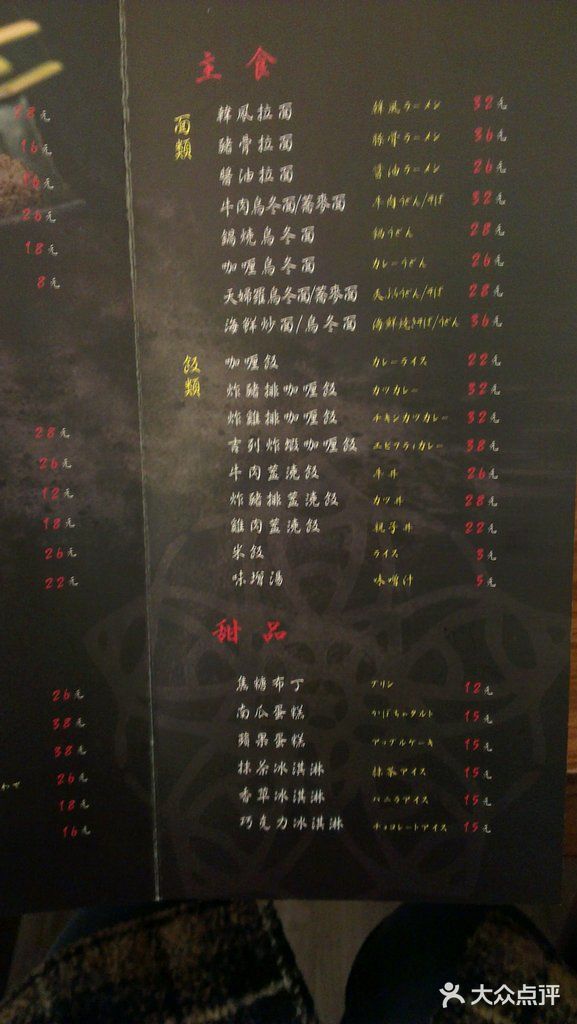 28元
16元
16元
26元
18元
8元
28元
26元
12元
18元
26元
22元
26元
38元
38元
26元
18元
16元
主食
面類
韓風拉面 韓風ラーメン 32元
豬骨拉面 豚骨ラーメン 36元
醬油拉面 醤油ラーメン 26元
牛肉烏冬面/蕎麥面 牛肉うどん/そば 32元
鍋燒烏冬面 鍋うどん 28元
咖喱烏冬面 カレーうどん 26元
天婦羅烏冬面/蕎麥面 天ぷらうどん/そば 28元
海鮮炒面/烏冬面 海鮮焼きそば/うどん 36元
飯類
咖喱飯 カレーライス 22元
炸豬排咖喱飯 カツカレー 32元
炸雞排咖喱飯 チキンカツカレー 32元
吉列炸蝦咖喱飯 エビフライカレー 38元
牛肉蓋澆飯 牛丼 26元
炸豬排蓋澆飯 カツ丼 28元
雞肉蓋澆飯 親子丼 22元
米飯 ライス 3元
味增湯 味噌汁 5元
甜品
焦糖布丁 プリン 12元
南瓜蛋糕 かぼちゃタルト 15元
蘋果蛋糕 アップルケーキ 15元
抹茶冰淇淋 抹茶アイス 15元
香草冰淇淋 バニラアイス 15元
巧克力冰淇淋 チョコレートアイス 15元
大众点评